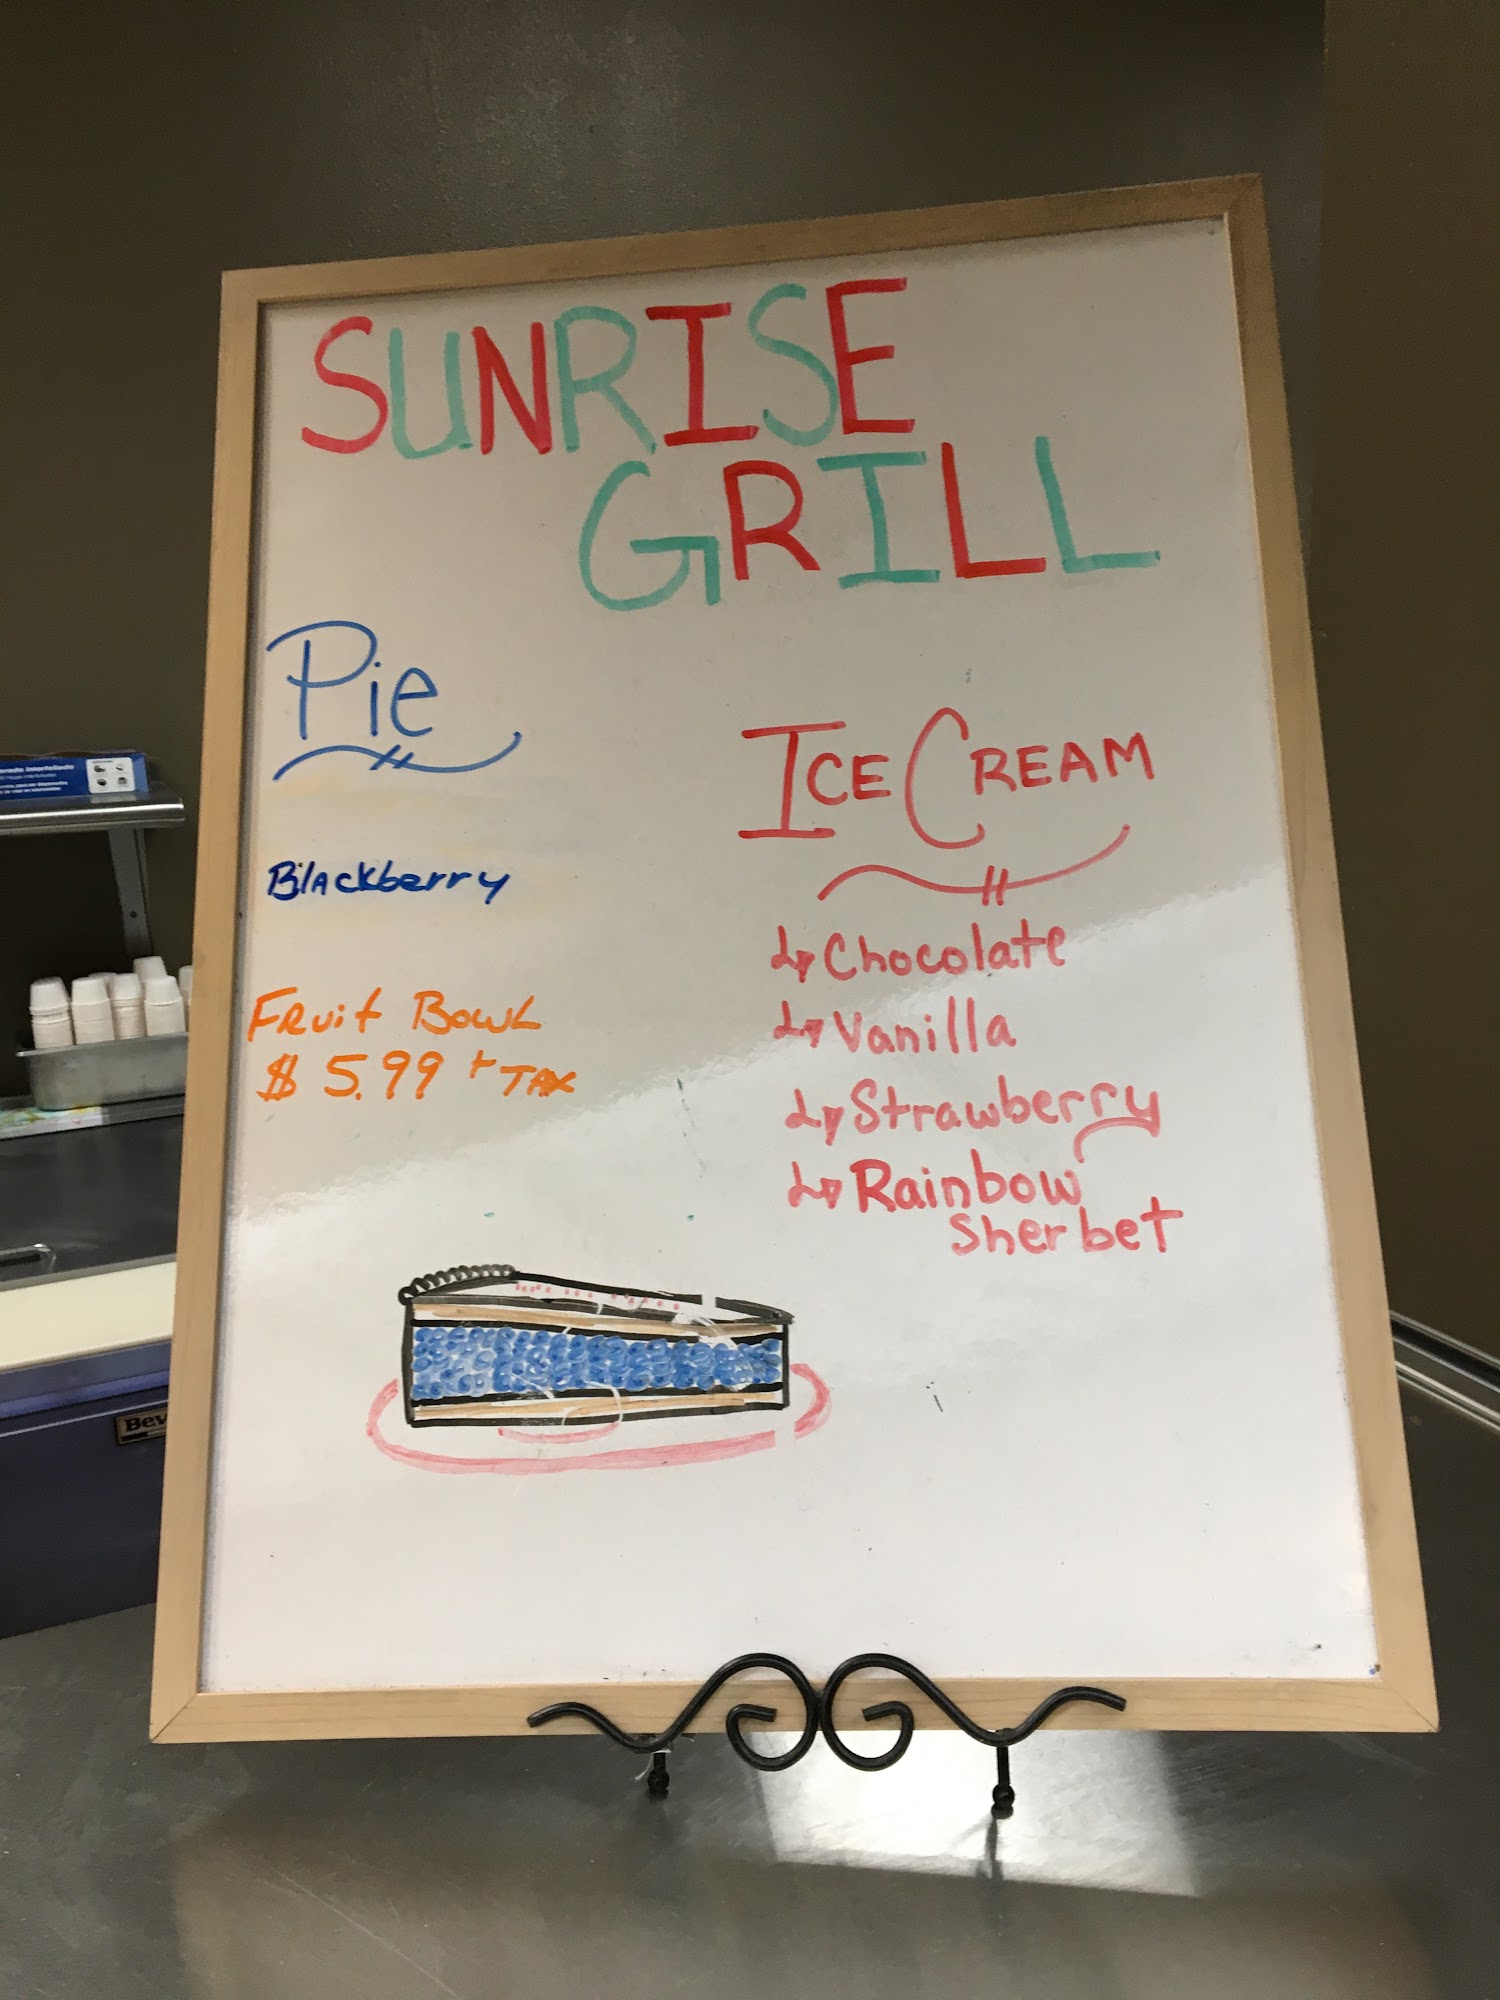 SUNRISE
GRILL
Pie
Blackberry
FRuit BOWL
$ 5.99 + TAX
ICE CREAM
Chocolate
Vanilla
Strawberry
Rainbow
Sherbet
Bev